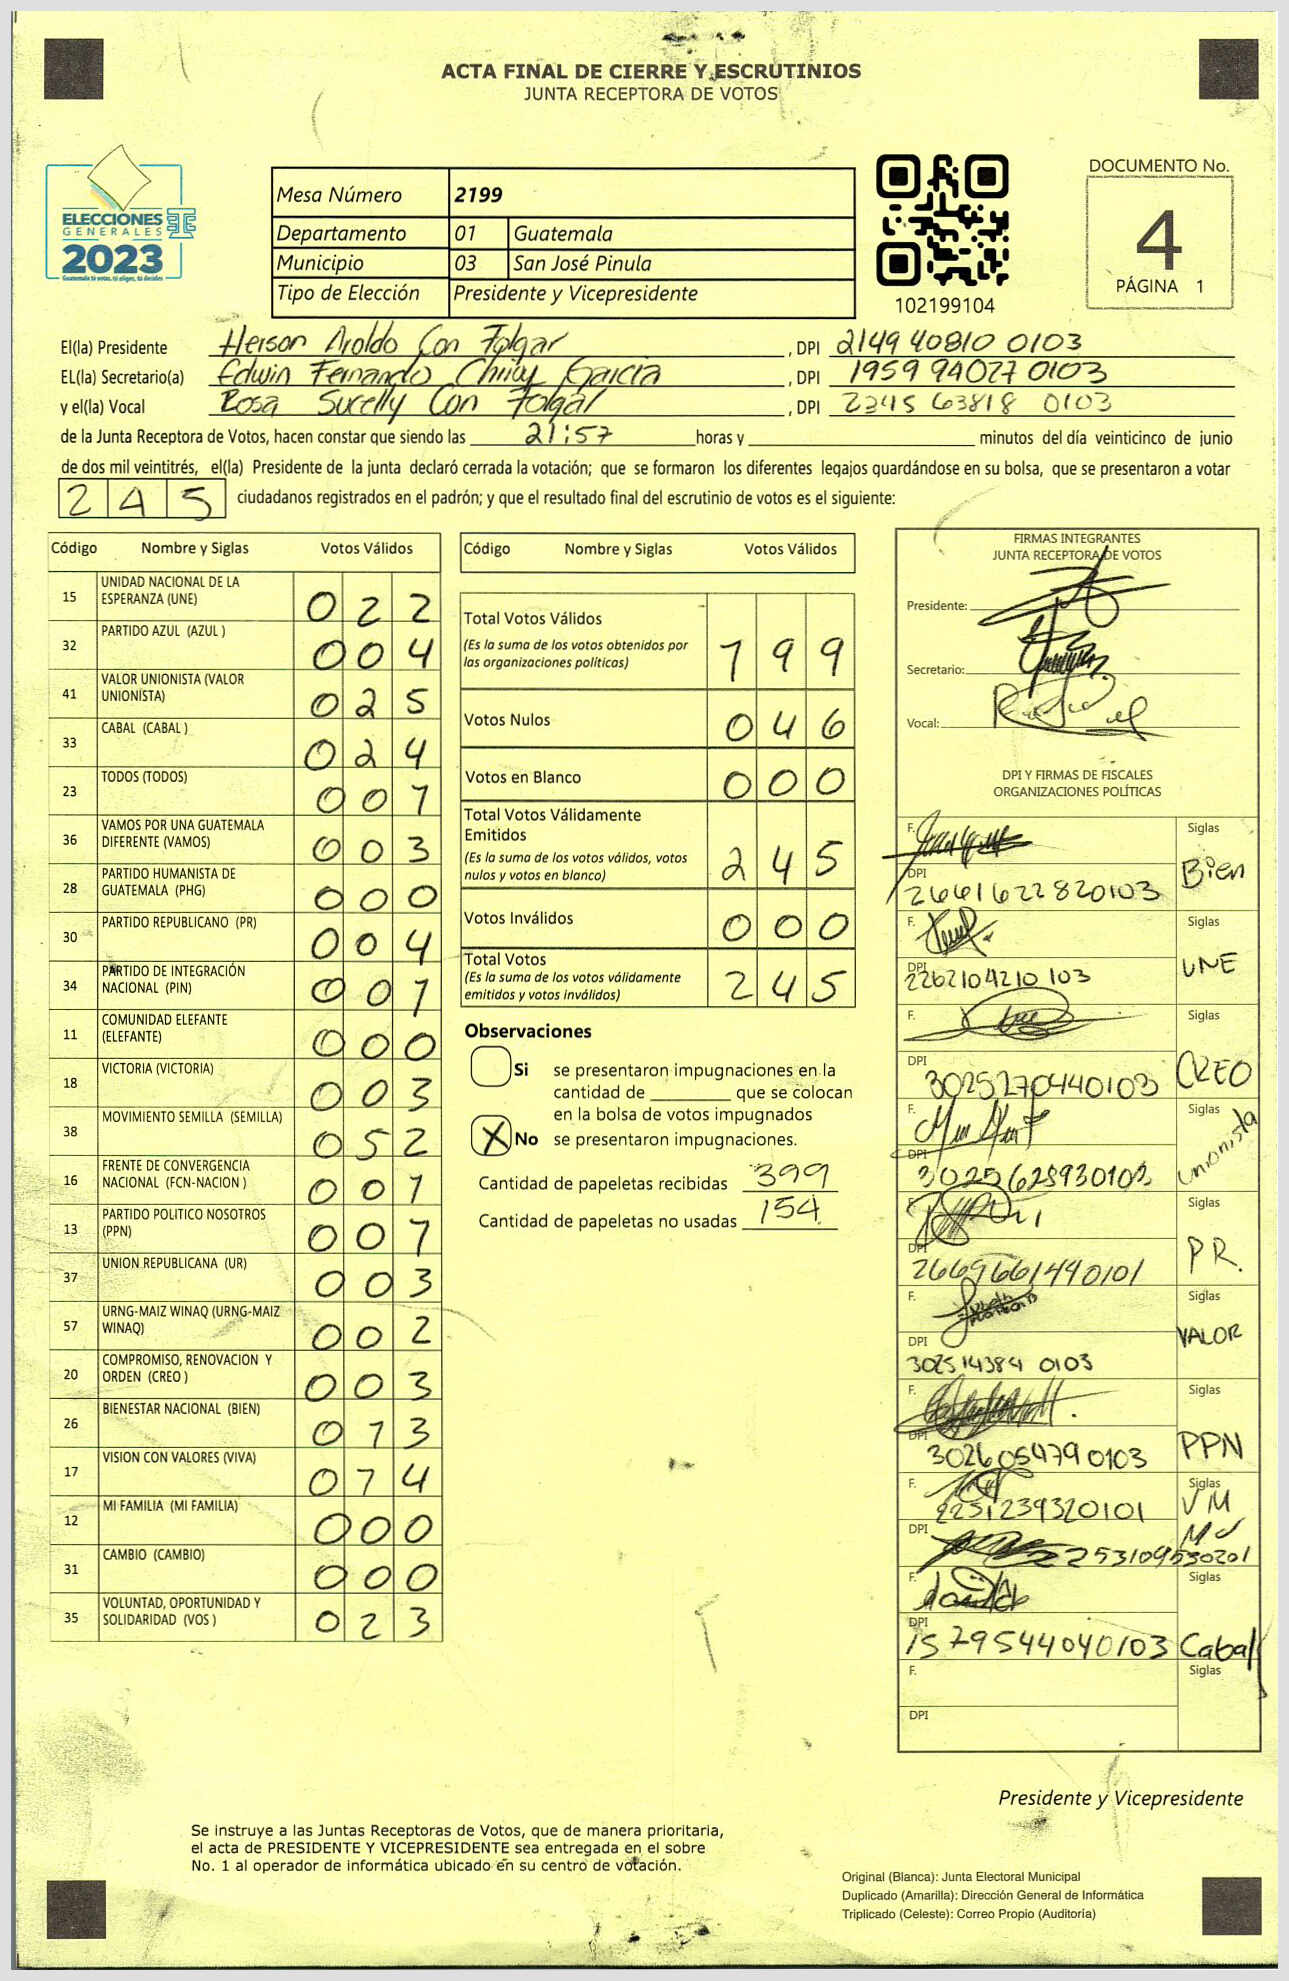 ACTA FINAL DE CIERRE Y ESCRUTINIOS
JUNTA RECEPTORA DE VOTOS
ELECCIONES
GENERALES
2023
Guatemala tú votas, tú eliges, tú decides
Mesa Número 2199
Departamento 01 Guatemala
Municipio 03 San José Pinula
Tipo de Elección Presidente y Vicepresidente
102199104
DOCUMENTO No.
4
PÁGINA 1
El(la) Presidente Herson Aroldo Con Folgar , DPI 2149 40810 0103
EL(la) Secretario(a) Edwin Fernando García , DPI 1959 94027 0103
y el(la) Vocal Rosa Sucelly Con Folgar , DPI 2345 63818 0103
de la Junta Receptora de Votos, hacen constar que siendo las 21:57 horas y minutos del día veinticinco de junio
de dos mil veintitrés, el(la) Presidente de la junta declaró cerrada la votación; que se formaron los diferentes legajos guardándose en su bolsa, que se presentaron a votar
245 ciudadanos registrados en el padrón; y que el resultado final del escrutinio de votos es el siguiente:
Código Nombre y Siglas Votos Válidos
15 UNIDAD NACIONAL DE LA ESPERANZA (UNE) 022
32 PARTIDO AZUL (AZUL ) 004
41 VALOR UNIONISTA (VALOR UNIONISTA) 025
33 CABAL (CABAL ) 024
23 TODOS (TODOS) 001
36 VAMOS POR UNA GUATEMALA DIFERENTE (VAMOS) 003
28 PARTIDO HUMANISTA DE GUATEMALA (PHG) 000
30 PARTIDO REPUBLICANO (PR) 004
34 PARTIDO DE INTEGRACIÓN NACIONAL (PIN) 001
11 COMUNIDAD ELEFANTE (ELEFANTE) 000
18 VICTORIA (VICTORIA) 003
38 MOVIMIENTO SEMILLA (SEMILLA) 052
16 FRENTE DE CONVERGENCIA NACIONAL (FCN-NACION ) 001
13 PARTIDO POLITICO NOSOTROS (PPN) 001
37 UNION REPUBLICANA (UR) 003
57 URNG-MAIZ WINAQ (URNG-MAIZ WINAQ) 002
20 COMPROMISO, RENOVACION Y ORDEN (CREO ) 003
26 BIENESTAR NACIONAL (BIEN) 013
17 VISION CON VALORES (VIVA) 014
12 MI FAMILIA (MI FAMILIA) 000
31 CAMBIO (CAMBIO) 000
35 VOLUNTAD, OPORTUNIDAD Y SOLIDARIDAD (VOS ) 023
Código Nombre y Siglas Votos Válidos
Total Votos Válidos 199
(Es la suma de los votos obtenidos por
las organizaciones políticas)
Votos Nulos 046
Votos en Blanco 000
Total Votos Válidamente
Emitidos 245
(Es la suma de los votos válidos, votos
nulos y votos en blanco)
Votos Inválidos 000
Total Votos 245
(Es la suma de los votos válidamente
emitidos y votos inválidos)
Observaciones
Si se presentaron impugnaciones en la
cantidad de ________ que se colocan
en la bolsa de votos impugnados
X No se presentaron impugnaciones.
Cantidad de papeletas recibidas 399
Cantidad de papeletas no usadas 154
FIRMAS INTEGRANTES
JUNTA RECEPTORA DE VOTOS
Presidente:
Secretario:
Vocal:
DPI Y FIRMAS DE FISCALES
ORGANIZACIONES POLÍTICAS
F. Siglas
DPI 2661622820103 Bien
F. Siglas
DPI 2262104210 103 UNE
F. Siglas
DPI 3025270440103 CREO
F. Siglas
DPI 3025625930103 unionista
F. Siglas
DPI 2669661490101 PR.
F. Siglas
DPI 302514384 0103 VALOR
F. Siglas
DPI 3026054790103 PPN
F. Siglas
2251239320101 VM
DPI 2253109530201
F. Siglas
DPI 1579544040103 Cabal
F. Siglas
DPI
Presidente y Vicepresidente
Se instruye a las Juntas Receptoras de Votos, que de manera prioritaria,
el acta de PRESIDENTE Y VICEPRESIDENTE sea entregada en el sobre
No. 1 al operador de informática ubicado en su centro de votación.
Original (Blanca): Junta Electoral Municipal
Duplicado (Amarilla): Dirección General de Informática
Triplicado (Celeste): Correo Propio (Auditoría)